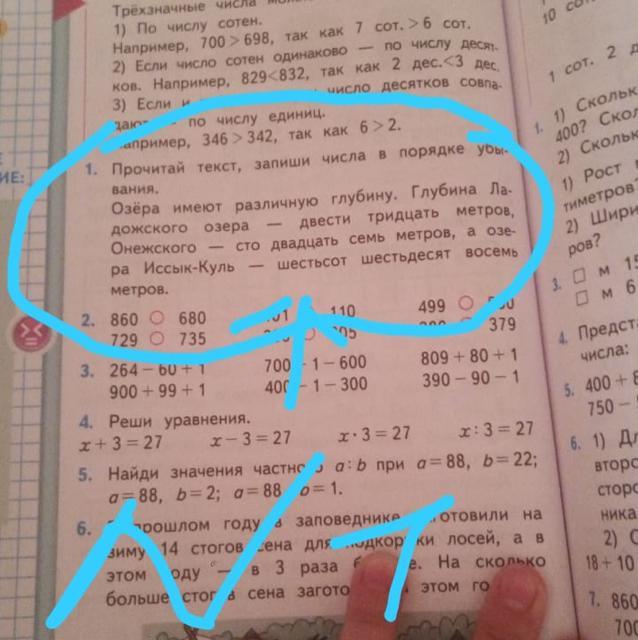 Трёхзначные числа
1) По числу сотен.
Например, 700 > 698, так как 7 сот. > 6 сот.
2) Если число сотен одинаково — по числу десят-
ков. Например, 829<832, так как 2 дес.<3 дес.
3) Если и число десятков совпа-
дают — по числу единиц.
Например, 346 > 342, так как 6 > 2.
1. Прочитай текст, запиши числа в порядке убы-
вания.
Озёра имеют различную глубину. Глубина Ла-
дожского озера — двести тридцать метров,
Онежского — сто двадцать семь метров, а озе-
ра Иссык-Куль — шестьсот шестьдесят восемь
метров.
2. 860 ○ 680 110 499 ○
729 ○ 735 ○ 379
3. 264 – 60 + 1 700 – 1 – 600 809 + 80 + 1
900 + 99 + 1 400 – 1 – 300 390 – 90 – 1
4. Реши уравнения.
x + 3 = 27 x – 3 = 27 x · 3 = 27 x : 3 = 27
5. Найди значения частного a : b при a = 88, b = 22;
a = 88, b = 2; a = 88, b = 1.
6. прошлом году в заповеднике заготовили на
зиму 14 стогов сена для подкормки лосей, а в
этом году — в 3 раза На сколько
больше стогов сена этом
N 1
ИЕ:
10
1 сот. 2 д
1. 1) Сколь
400?
2) Сколь
1) Рост
тиметров
2) Шири
ров?
3. □ м
□ м 6
4. Предст
числа:
5. 400 + 8
750 –
6. 1) Дл
второ
сторо
ника
2) С
18 + 10
7. 860
700